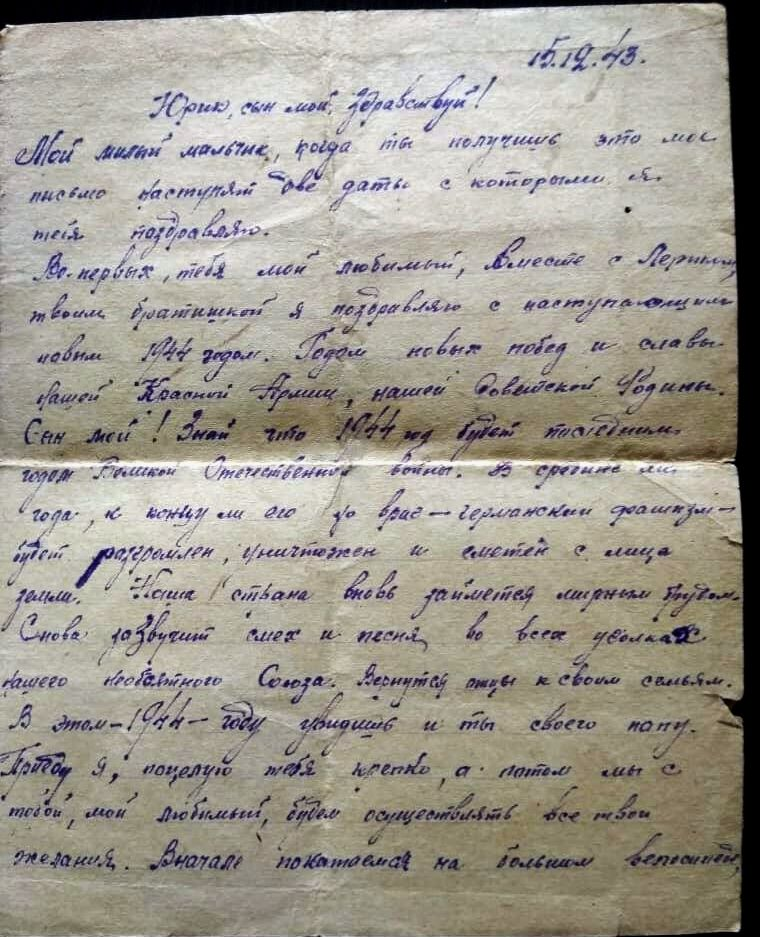 15.12.43.
Юрик, сын мой, здравствуй!
Мой милый мальчик, когда ты получишь это мое
письмо наступят две даты с которыми я
тебя поздравляю.
Во-первых, тебя мой любимый, вместе с
твоим братишкой я поздравляю с наступающим
новым 1944 годом. Годом новых побед и славы
нашей Красной Армии, нашей Советской Родины.
Сын мой! Знай что 1944 год будет последним
годом Великой Отечественной войны. В средине ли
года, к концу ли его но враг — германский фашизм —
будет разгромлен, уничтожен и сметён с лица
земли. Наша страна вновь займется мирным трудом.
Снова зазвучит смех и песня во всех уголках
нашего необъятного Союза. Вернутся отцы к своим семьям.
В этом — 1944 — году увидишь и ты своего папу.
Приеду я, поцелую тебя крепко, а потом мы с
тобой, мой любимый, будем осуществлять все твои
желания. Вначале покатаемся на большим велосипеде,